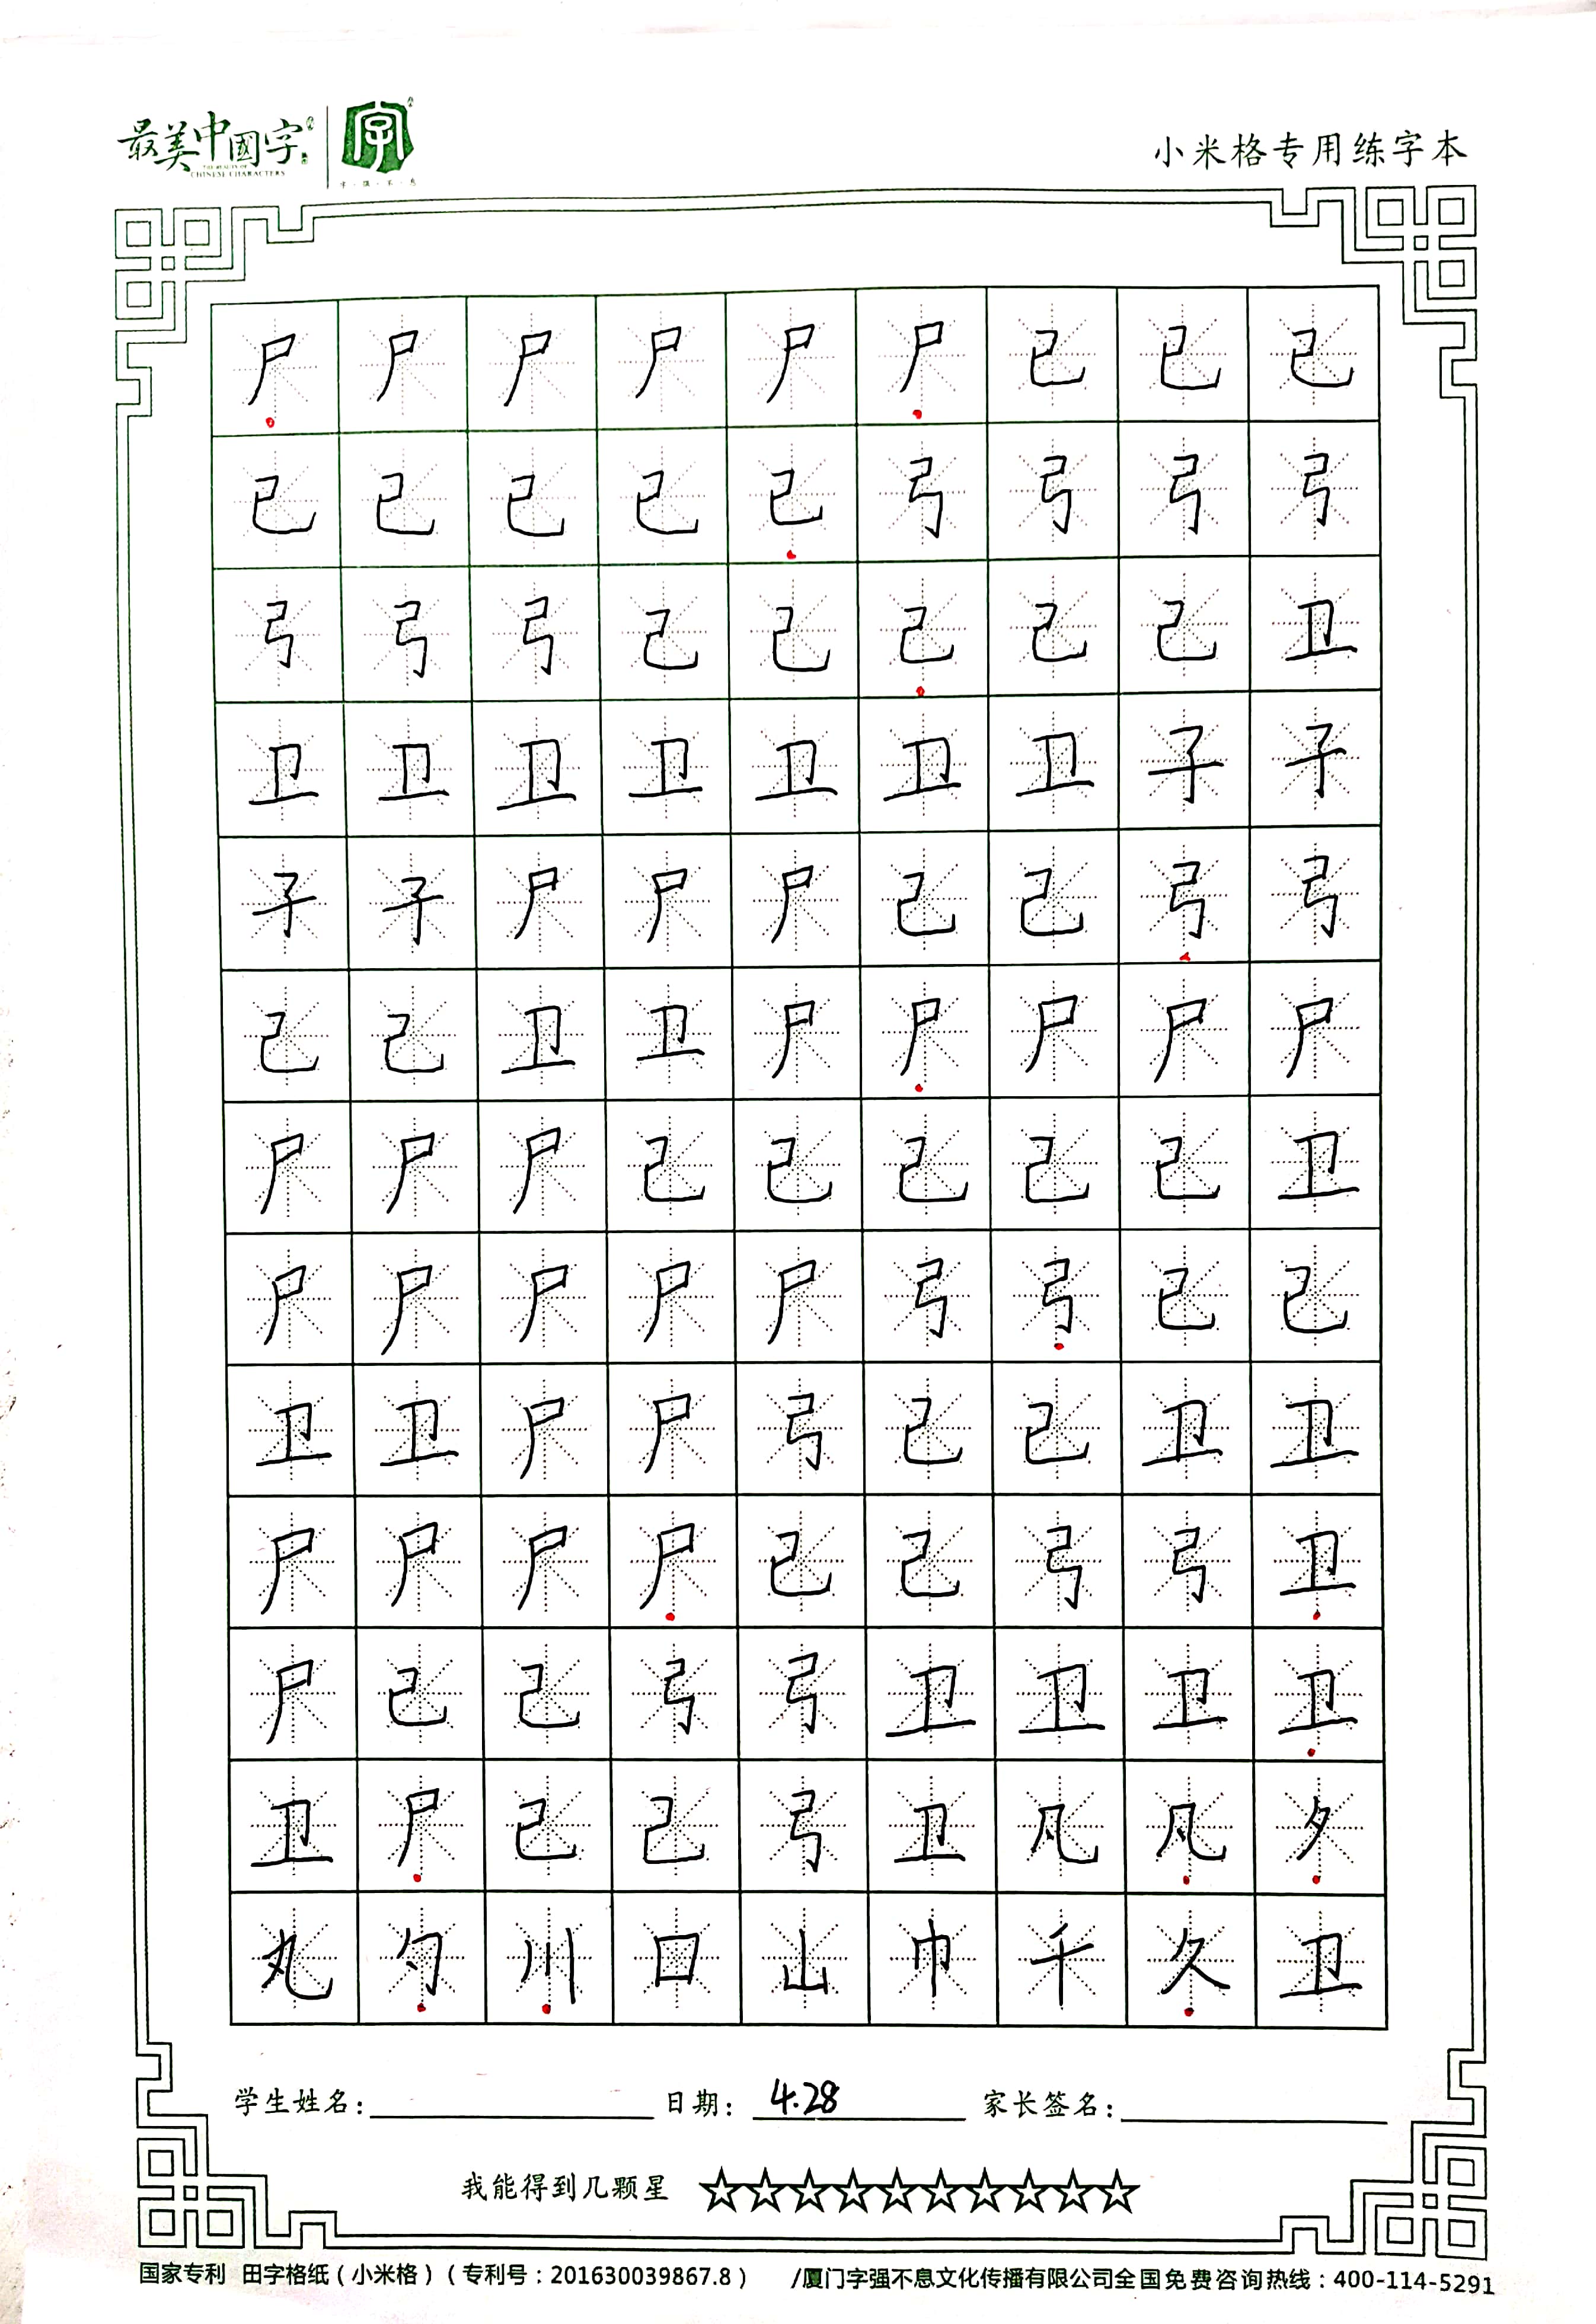 最美中國字
THE BEAUTY OF
CHINESE CHARACTERS
字
字·强·不·息
小米格专用练字本
尸 尸 尸 尸 尸 尸 已 已 已
已 已 已 已 已 弓 弓 弓 弓
弓 弓 弓 己 己 己 己 己 卫
卫 卫 卫 卫 卫 卫 卫 子 子
子 子 尸 尸 尸 己 己 弓 弓
己 己 卫 卫 尸 尸 尸 尸 尸
尸 尸 尸 己 己 己 己 己 卫
尸 尸 尸 尸 尸 弓 弓 已 已
卫 卫 尸 尸 弓 己 己 卫 卫
尸 尸 尸 尸 己 己 弓 弓 卫
尸 已 己 弓 弓 卫 卫 卫 卫
卫 尸 已 己 弓 卫 凡 凡 夕
丸 勺 川 口 山 巾 千 久 卫
学生姓名： 日期： 4.28 家长签名：
我能得到几颗星 ☆☆☆☆☆☆☆☆☆☆
国家专利 田字格纸（小米格）（专利号：201630039867.8） /厦门字强不息文化传播有限公司全国免费咨询热线：400-114-5291